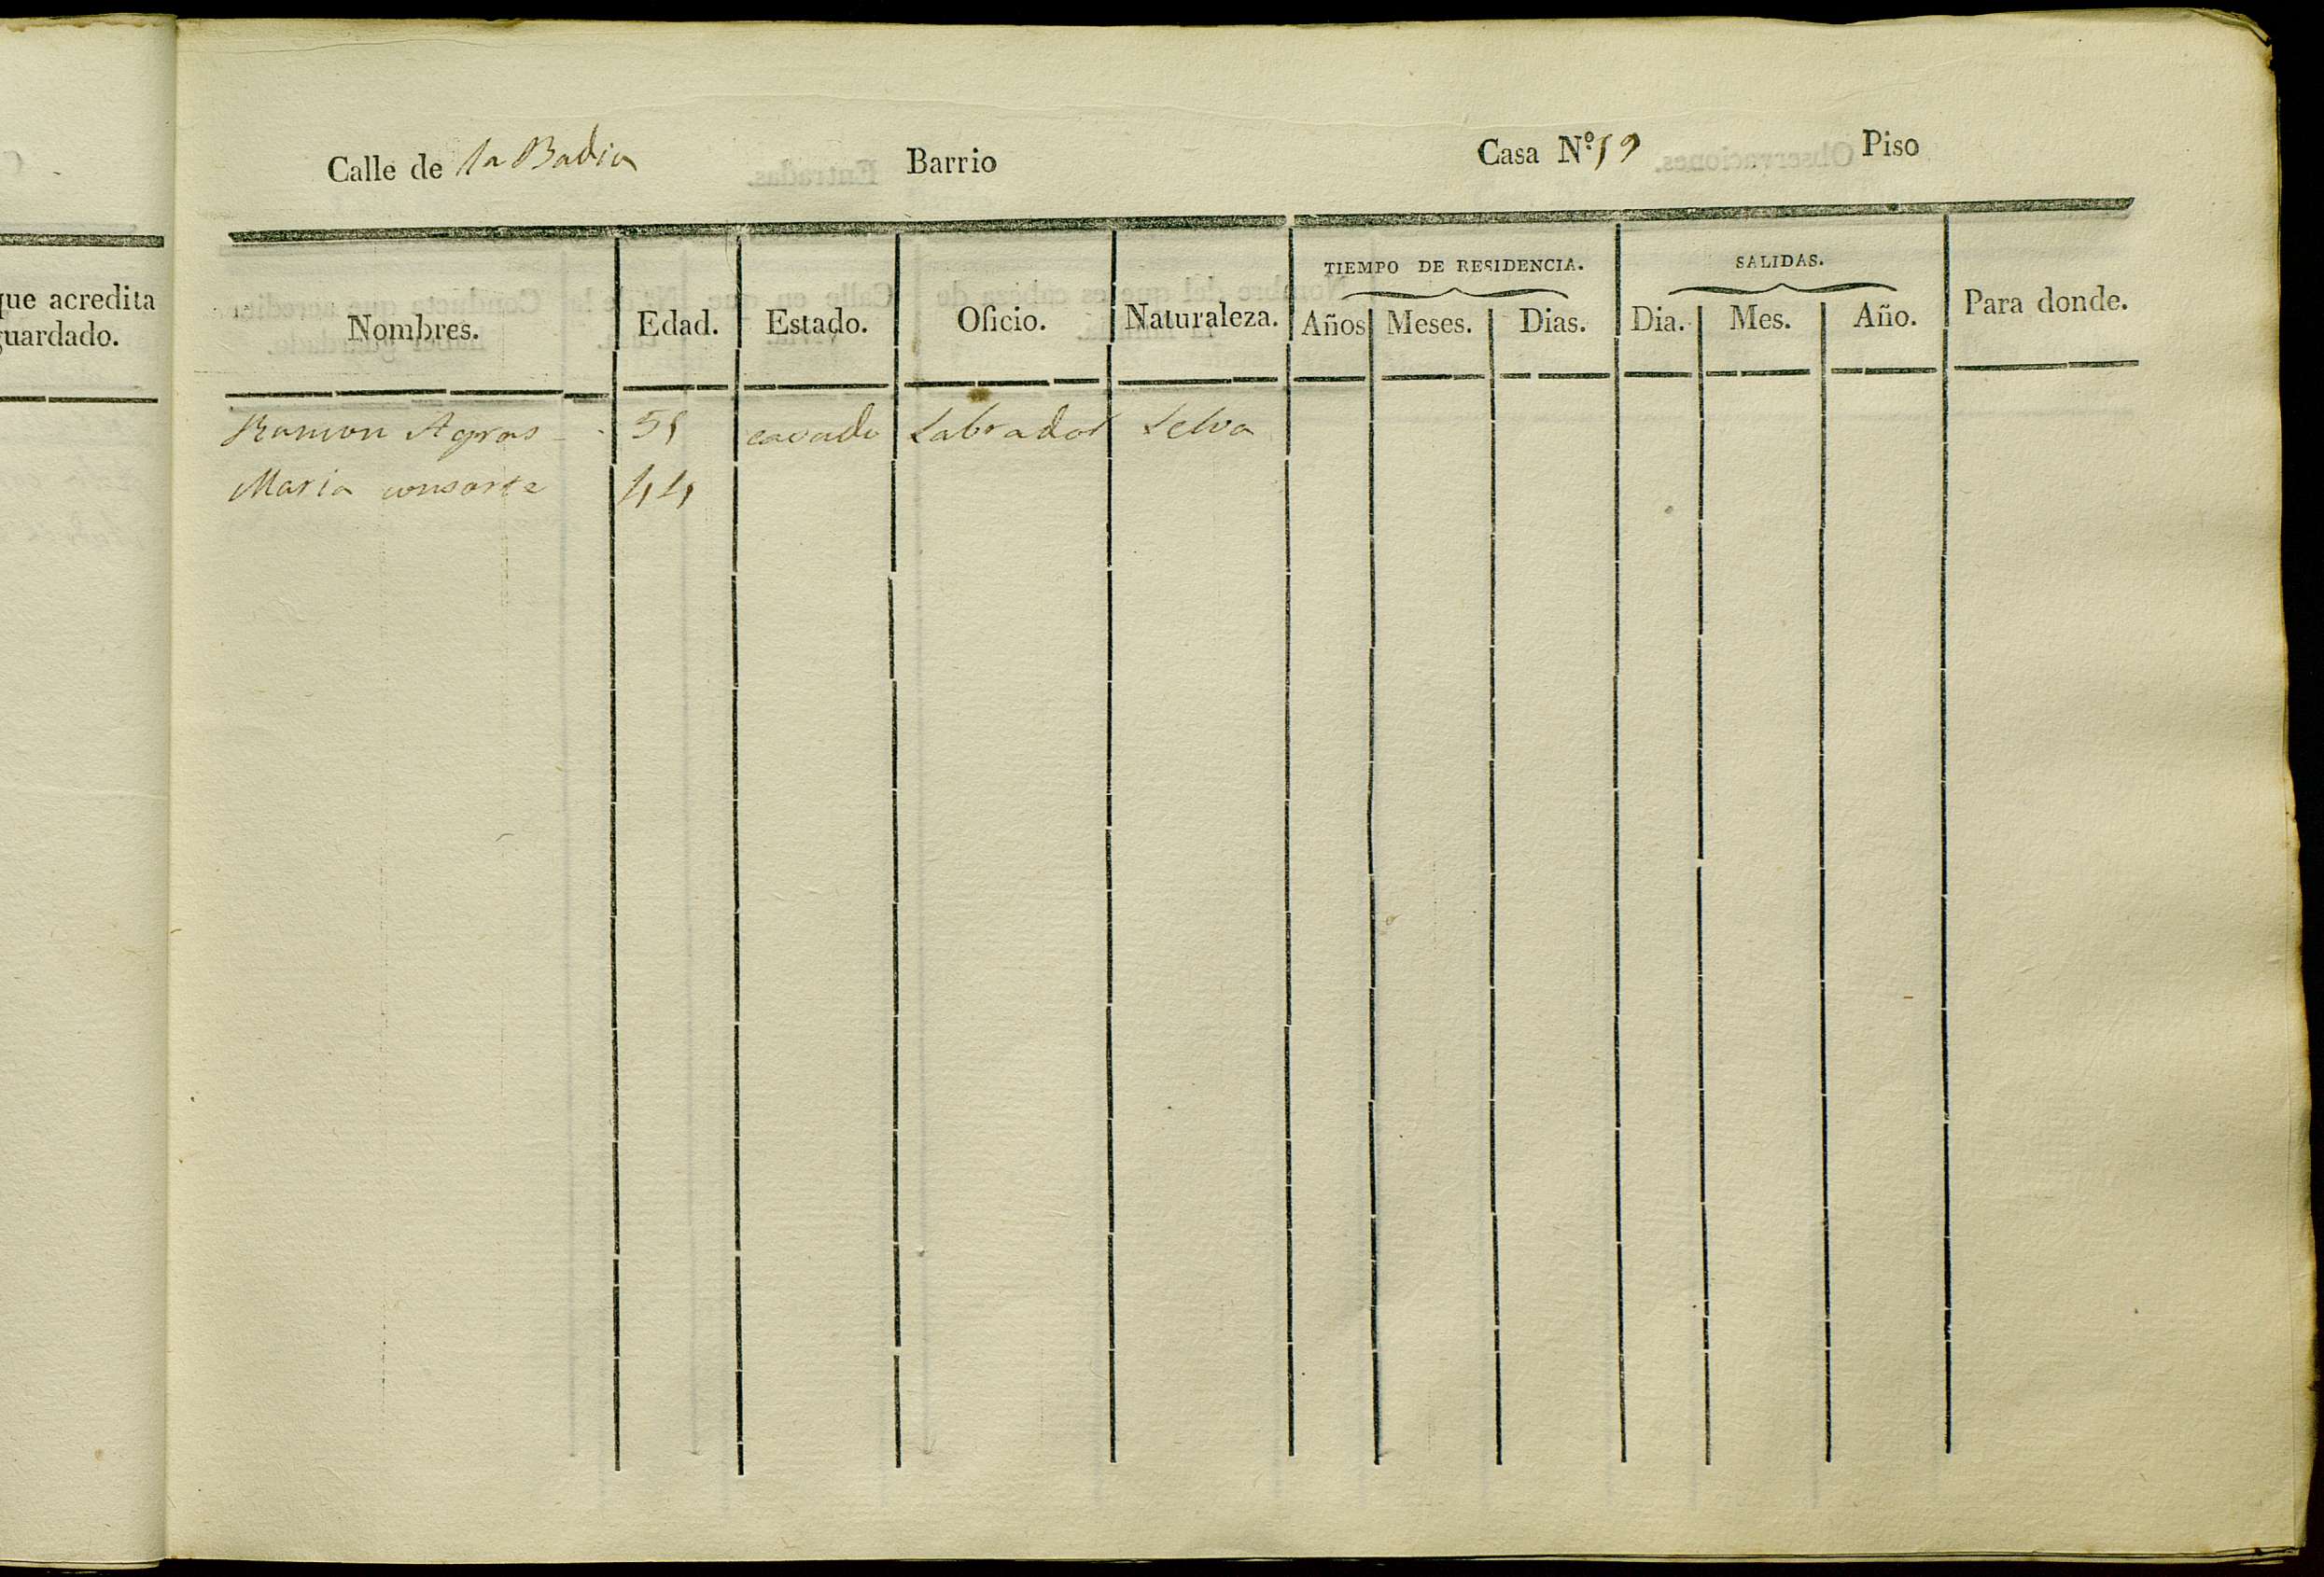 que acredita
guardado.
Calle de la Badia Barrio Casa N.º 59 Piso
TIEMPO DE RESIDENCIA. SALIDAS.
Nombres. Edad. Estado. Oficio. Naturaleza. Años Meses. Dias. Dia. Mes. Año. Para donde.
Ramon Agras 51 casado Labrador Selva
Maria consorte 44